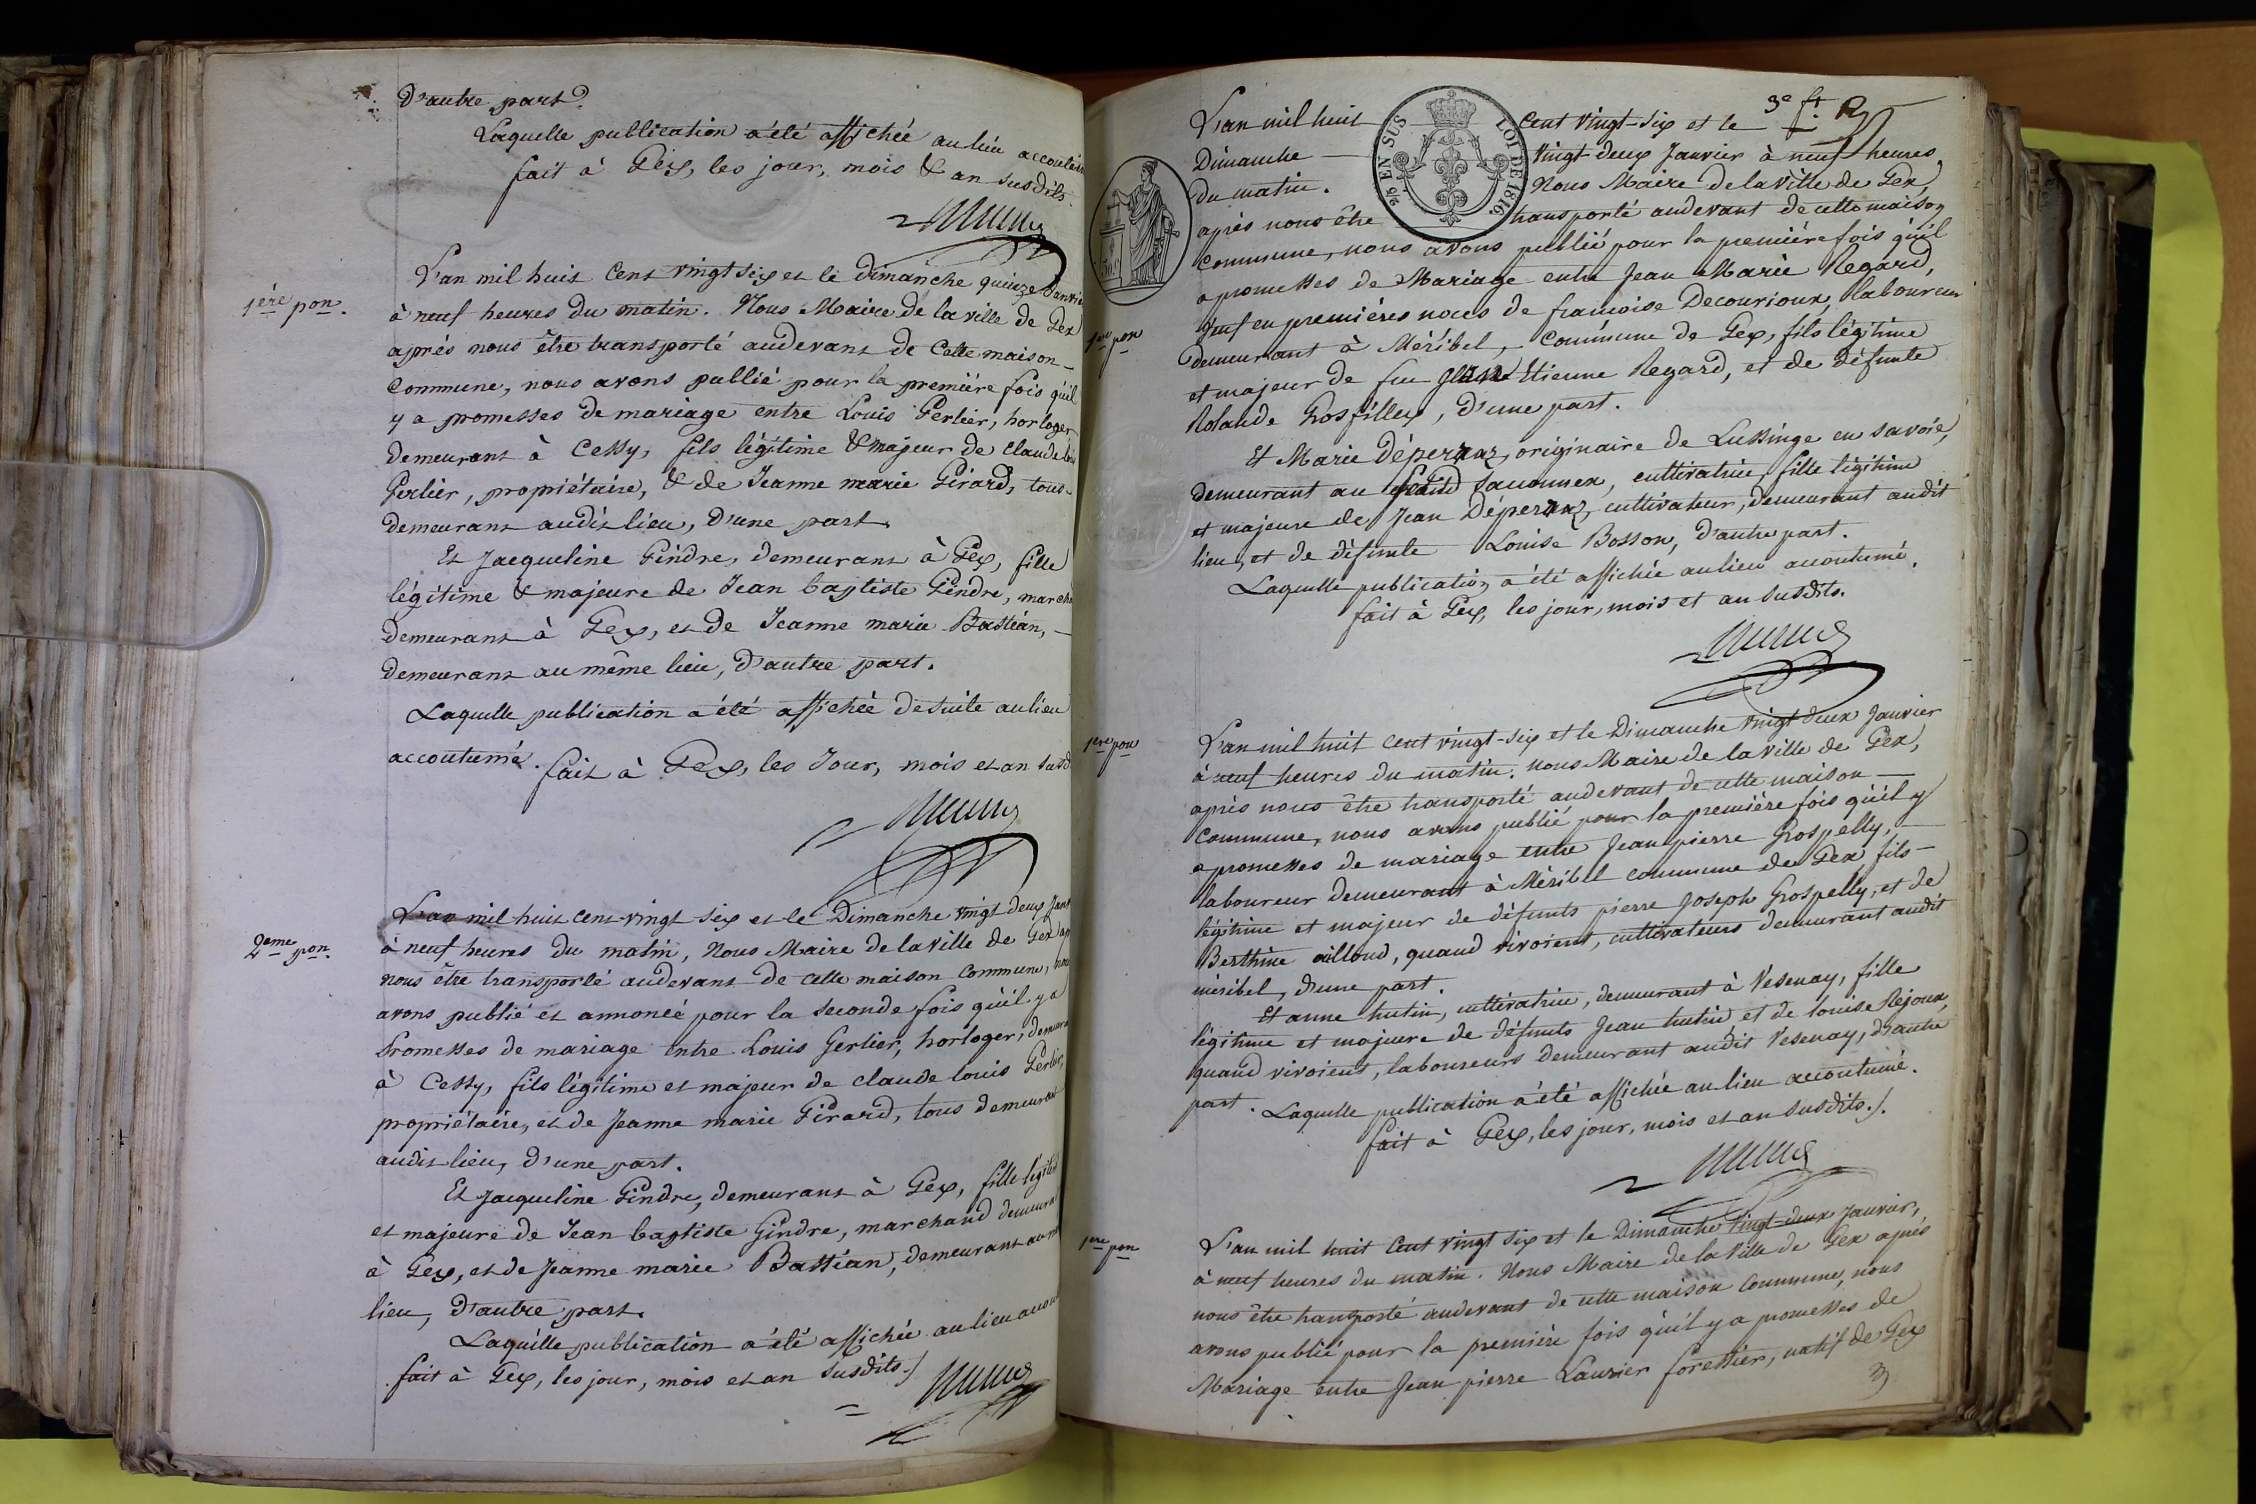 D'autre part.
Laquelle publication a été affichée au lieu accoutumé
fait à Gex, les jour, mois & an susdits.
1ère pon.
L'an mil huit Cent vingt six et le Dimanche quinze Janvier
à neuf heures du matin. Nous Maire de la ville de Gex
après nous être transporté audevant de Cette maison
Commune, nous avons publié pour la première fois qu'il
y a promesses de mariage entre Louis Gerlier, horloger
demeurant à Cessy, fils légitime & majeur de Claude Louis
Gerlier, propriétaire, & de Jeanne marie Girard, tous
demeurant audit lieu, d'une part.
Et Jacqueline Gindre, demeurant à Gex, fille
légitime & majeure de Jean baptiste Gindre, march
demeurant à Gex, et de Jeanne marie Bastian,
demeurant au même lieu, d'autre part.
Laquelle publication a été affichée de suite au lieu
accoutumé.
fait à Gex, les Jour, mois et an susd
2eme pon.
L'an mil huit cent vingt six et le Dimanche vingt deux Janv
à neuf heures du matin, Nous Maire de la ville de Gex ap
nous être transporté audevant de cette maison Commune, nou
avons publié et annoncé pour la seconde fois qu'il y a
Promesses de mariage entre Louis Gerlier, horloger, demeura
à Cessy, fils légitime et majeur de claude louis Gerlier,
propriétaire, et de Jeanne marie Girard, tous demeurant
audit lieu, d'une part.
Et Jacqueline Gindre, demeurant à Gex, fille légiti
et majeure de Jean baptiste Gindre, marchand demeura
à Gex, et de Jeanne marie Bastian, demeurant au m
lieu, d'autre part.
Laquelle publication a été affichée au lieu accou
fait à Gex, les jour, mois et an susdits./
3e ft. R
L'an mil huit Cent vingt-six et le
Dimanche vingt-deux Janvier à neuf heures
du matin. Nous Maire de la Ville de Gex,
après nous être transporté audevant de cette maison
2/5 EN SUS LOI DE 1816.
1ere pon
Commune, nous avons publié pour la première fois qu'il
a promesses de Mariage entre Jean Marie Regard,
Veuf en premières noces de francoise Decourioux, laboureur
demeurant à Méribel, Commune de Gex, fils légitime
et majeur de feu Etienne Regard, et de défunte
Rolande Grosfilley, d'une part.
Et Marie Dépéraz, originaire de Lussinge en Savoie,
demeurant au Saconnex, cultivatrice, fille légitime
et majeure de Jean Dépéraz, cultivateur, demeurant audit
lieu, et de défunte Louise Bosson, d'autre part.
Laquelle publication a été affichée au lieu accoutumé.
fait à Gex, les jour, mois et an susdits.
1ere pon
L'an mil huit cent vingt-six et le Dimanche vingt deux Janvier
à neuf heures du matin. Nous Maire de la ville de Gex,
après nous être transporté audevant de cette maison
Commune, nous avons publié pour la première fois qu'il y
a promesses de mariage entre Jean pierre Grospelly,
laboureur demeurant à Méribel commune de Gex, fils
légitime et majeur de défunts pierre Joseph Grospelly, et de
Berthine oilloud, quand vivoient, cultivateurs demeurant audit
méribel, d'une part.
Et anne hutin, cultivatrice, demeurant à Vesenay, fille
légitime et majeure de défunts Jean hutin et de louise Rejoux,
quand vivoient, laboureurs demeurant audit Vesenay, d'autre
part. Laquelle publication a été affichée au lieu accoutumé.
fait à Gex, les jour, mois et an susdits./.
1ere pon
L'an mil huit Cent vingt six et le Dimanche vingt-deux Janvier,
à neuf heures du matin. Nous Maire de la Ville de Gex après
nous être transporté audevant de cette maison Commune, nous
avons publié pour la première fois qu'il y a promesses de
Mariage entre Jean pierre Laurier forestier, natif de Gex
3